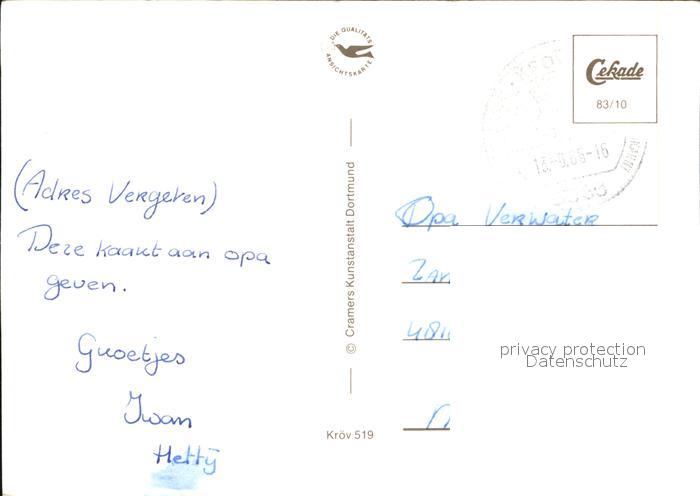 DIE QUALITÄTS
ANSICHTSKARTE
Cekade
83/10
(Adres Vergeten)
Deze kaart aan opa
geven.
Groetjes
Iwan
Hetty
© Cramers Kunstanstalt Dortmund
Kröv 519
Opa Verwater
Zan
481
privacy protection
Datenschutz